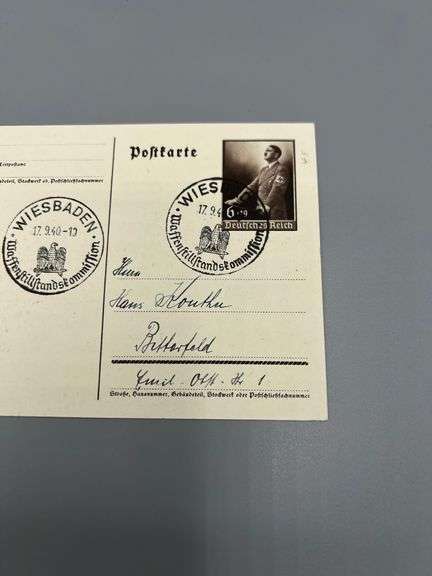 Postkarte
Gebäudeteil, Stockwerk od. Postschließfachnummer
WIESBADEN
17.9.40-10
Waffenstillstandskommission
WIESB
17.9.4
Waffenstillstandskommission
6+19
Deutsches Reich
Herrn
Hans
Bitterfeld
Straße, Hausnummer, Gebäudeteil, Stockwerk oder Postschließfachnummer